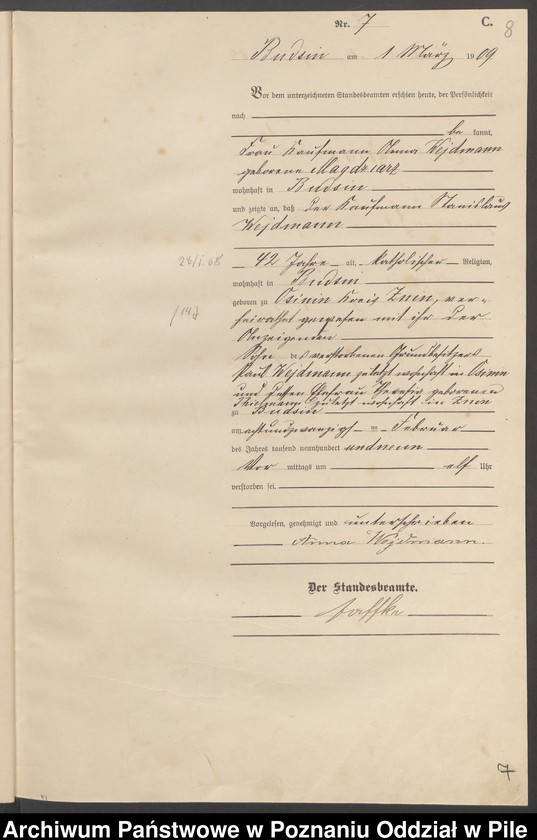 Nr. 7 C. 8
Budsin am 1 März 1909
Vor dem unterzeichneten Standesbeamten erschien heute, der Persönlichkeit
nach
be kannt,
Frau Kaufmann Anna Wejdmann
geborene Magdziarz
wohnhaft in Budsin
und zeigte an, daß der Kaufmann Stanislaus
Wejdmann
42 Jahre alt, katholischer Religion,
wohnhaft in Budsin
geboren zu Osinin Kreis Znin, ver-
heirathet gewesen mit ihr der
Anzeigenden
Sohn des verstorbenen Grundbesitzers
Wejdmann zuletzt wohnhaft in
und dessen Ehefrau geborenen
zuletzt wohnhaft in Znin
zu Budsin
am achtundzwanzigsten Februar
des Jahres tausend neunhundert undneun
Vor mittags um elf Uhr
verstorben sei.
Vorgelesen, genehmigt und unterschrieben
Anna Wejdmann.
Der Standesbeamte.
7
Archiwum Państwowe w Poznaniu Oddział w Pile